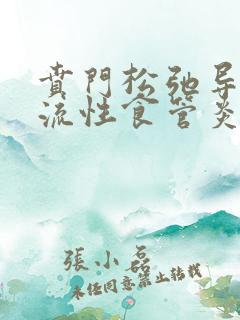 賁門松弛导
流性食管炎
張小磊
未經同意禁止转载